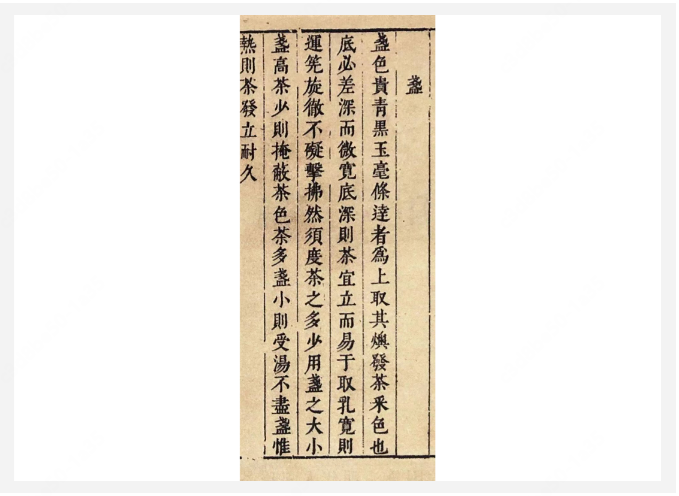 盞
盞色貴青黑玉毫條達者為上取其燠發茶采色也
底必差深而微寬底深則茶宜立而易于取乳寬則
運筅旋徹不礙擊拂然須度茶之多少用盞之大小
盞高茶少則掩蔽茶色茶多盞小則受湯不盡盞惟
熱則茶發立耐久